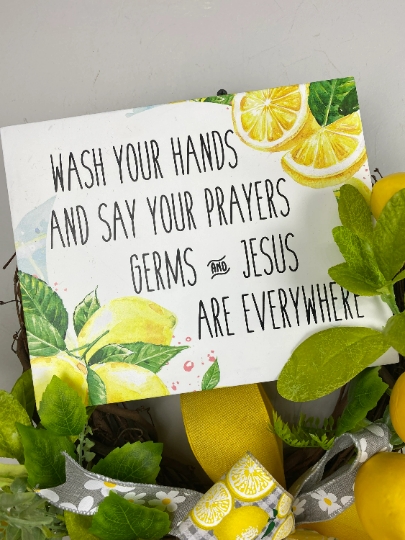 WASH YOUR HANDS
AND SAY YOUR PRAYERS
GERMS AND JESUS
ARE EVERYWHERE